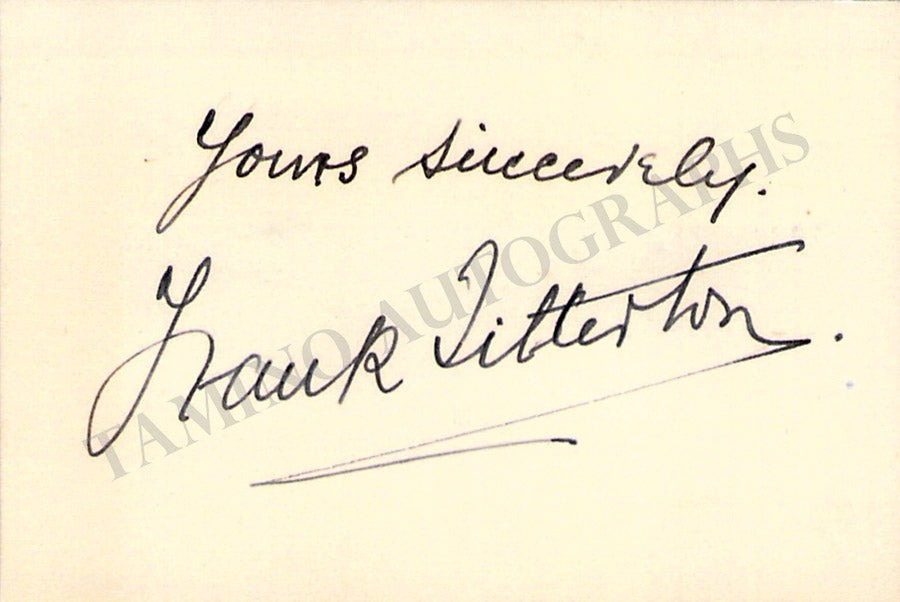 Yours sincerely.
Frank Titterton.
TAMINO AUTOGRAPHS